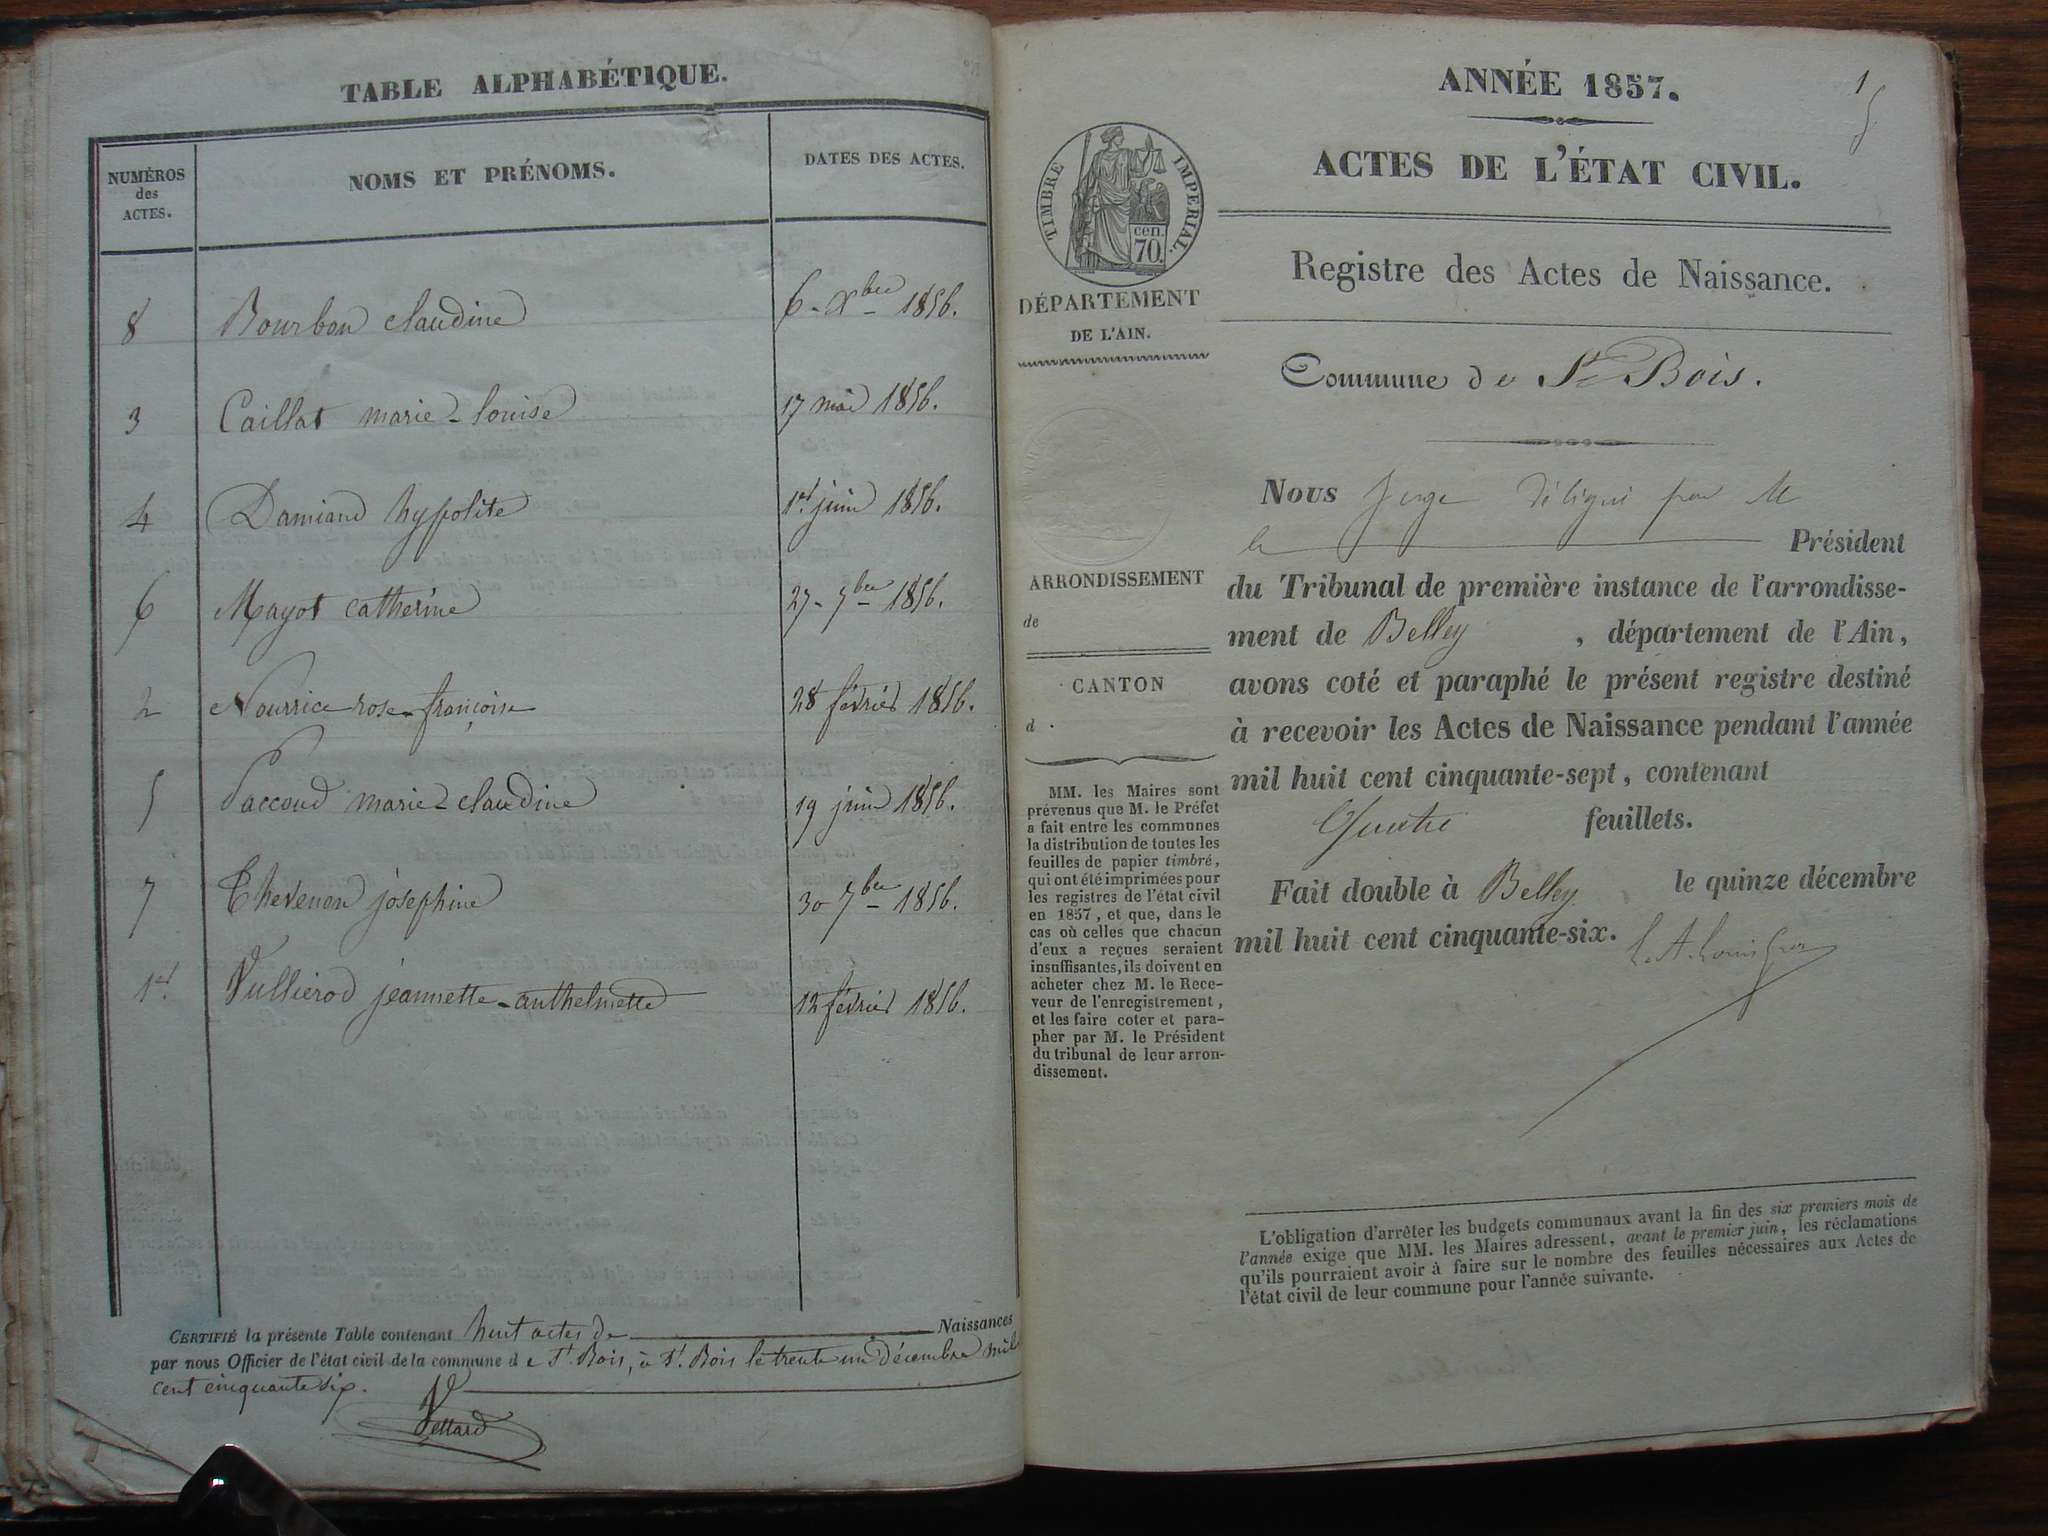 TABLE ALPHABÉTIQUE.
NUMÉROS des ACTES. NOMS ET PRÉNOMS. DATES DES ACTES.
8 Bourbon claudine 6 - Xbre 1856.
3 Caillat marie-louise 17 mai 1856.
4 Damiand hypolite 1er juin 1856.
6 Mayot catherine 27 - 7bre 1856.
2 Nourrice rose-françoise 28 février 1856.
5 Paccoud marie-claudine 19 juin 1856.
7 Thevenon joséphine 30 7bre 1856.
1er Vullierod jeannette-anthelmette 12 février 1856.
CERTIFIÉ la présente Table contenant huit actes de Naissances
par nous Officier de l'état civil de la commune d e St. Bois, à St. Bois le trente un décembre mil
cent cinquante six.
Vettard
1
ANNÉE 1857.
ACTES DE L'ÉTAT CIVIL.
TIMBRE IMPÉRIAL.
cen.
70.
DÉPARTEMENT
DE L'AIN.
Registre des Actes de Naissance.
Commune de St Bois.
Nous Juge délégué par M
le Président
du Tribunal de première instance de l'arrondisse-
ment de Belley, département de l'Ain,
avons coté et paraphé le présent registre destiné
à recevoir les Actes de Naissance pendant l'année
mil huit cent cinquante-sept, contenant
Quatre feuillets.
Fait double à Belley le quinze décembre
mil huit cent cinquante-six.
ARRONDISSEMENT
de
CANTON
d
MM. les Maires sont
prévenus que M. le Préfet
a fait entre les communes
la distribution de toutes les
feuilles de papier timbré,
qui ont été imprimées pour
les registres de l'état civil
en 1857, et que, dans le
cas où celles que chacun
d'eux a reçues seraient
insuffisantes, ils doivent en
acheter chez M. le Rece-
veur de l'enregistrement,
et les faire coter et para-
pher par M. le Président
du tribunal de leur arron-
dissement.
L'obligation d'arrêter les budgets communaux avant la fin des six premiers mois de
l'année exige que MM. les Maires adressent, avant le premier juin, les réclamations
qu'ils pourraient avoir à faire sur le nombre des feuilles nécessaires aux Actes de
l'état civil de leur commune pour l'année suivante.